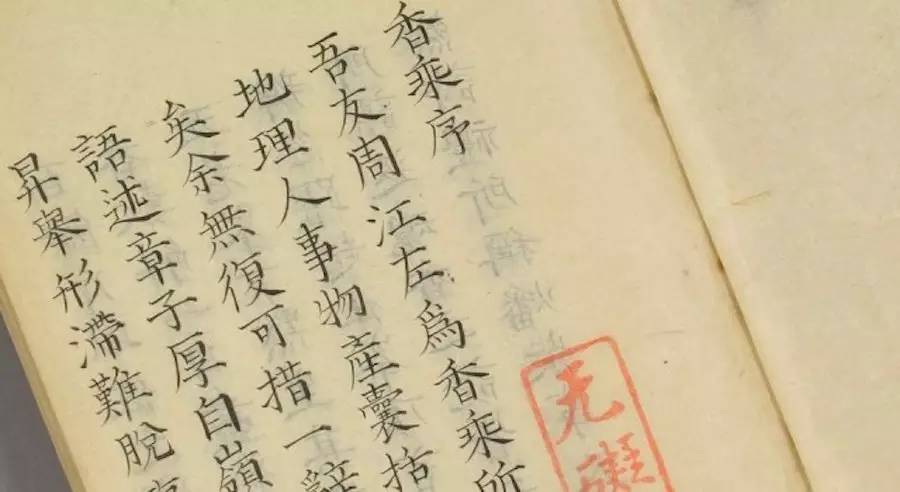 香乘序
吾友周江左為香乘所
地理人事物產囊括
矣余無復可措一辭
語述章子厚自嶺
昇舉形滯難脫
无礙